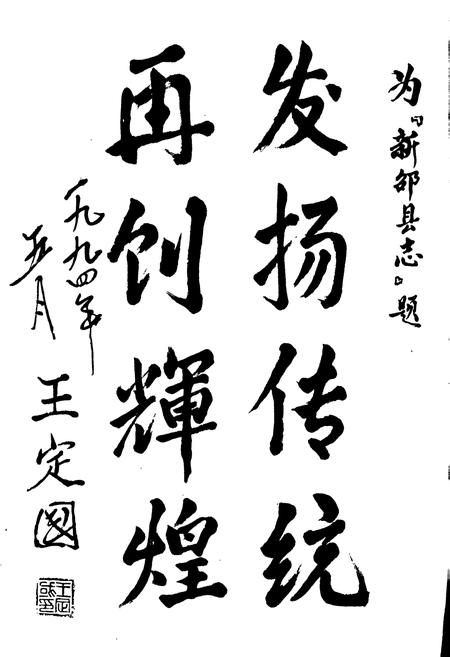 为《新邵县志》题
发扬传统
再创輝煌
一九九四年
五月
王定國